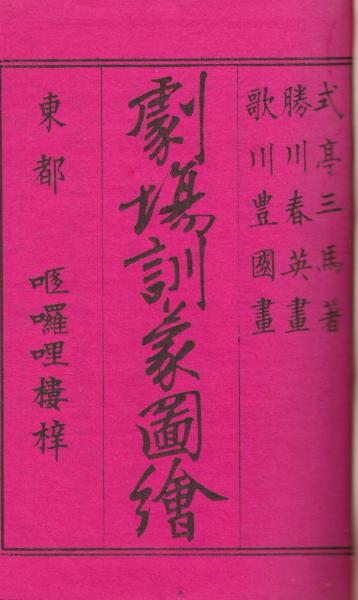 式亭三馬著
勝川春英畫
歌川豊國畫
劇場訓蒙圖繪
東都
哂囉哩樓梓